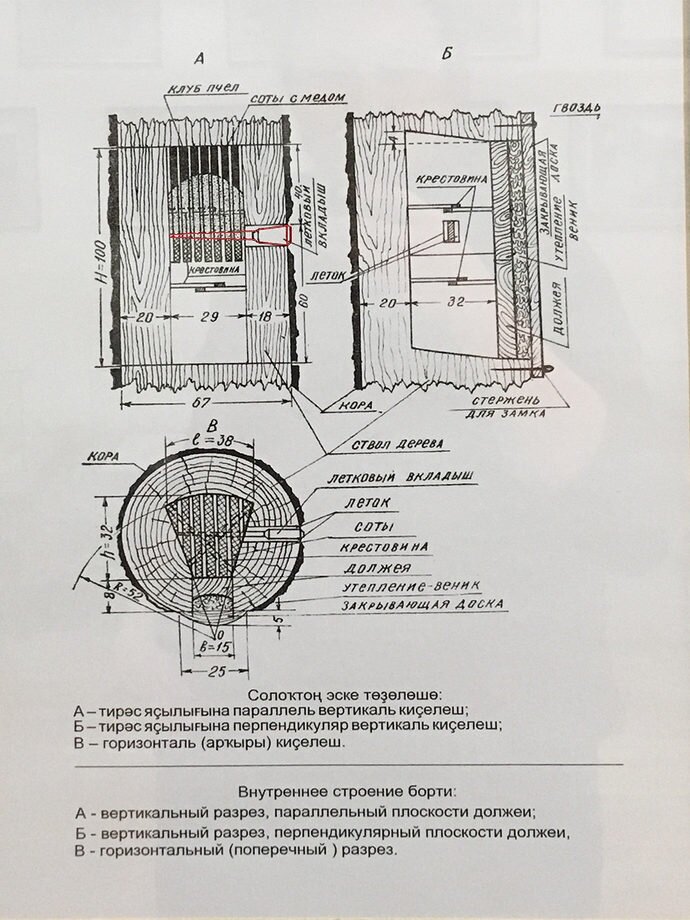 А
Б
КЛУБ ПЧЕЛ
СОТЫ С МЕДОМ
ГВОЗДЬ
4
КРЕСТОВИНА
ЗАКРЫВАЮЩАЯ ДОСКА
УТЕПЛЕНИЕ
ВЕНИК
40
ЛЕТКОВЫЙ
ВКЛАДЫШ
H=100
КРЕСТОВИНА
ЛЕТОК
ДОЛЖЕЯ
60
20
29
18
20
32
67
КОРА
СТЕРЖЕНЬ
ДЛЯ ЗАМКА
В
ℓ=38
СТВОЛ ДЕРЕВА
КОРА
ЛЕТКОВЫЙ ВКЛАДЫШ
ЛЕТОК
СОТЫ
h=32
КРЕСТОВИНА
ДОЛЖЕЯ
R=52
8
УТЕПЛЕНИЕ-ВЕНИК
ЗАКРЫВАЮЩАЯ ДОСКА
5
О
в=15
25
Солоҡтоң эске төҙөлөшө:
А – тирәс яҫылығына параллель вертикаль киҫелеш;
Б – тирәс яҫылығына перпендикуляр вертикаль киҫелеш;
В – горизонталь (арҡыры) киҫелеш.
Внутреннее строение борти:
А - вертикальный разрез, параллельный плоскости должеи;
Б - вертикальный разрез, перпендикулярный плоскости должеи,
В - горизонтальный (поперечный ) разрез.